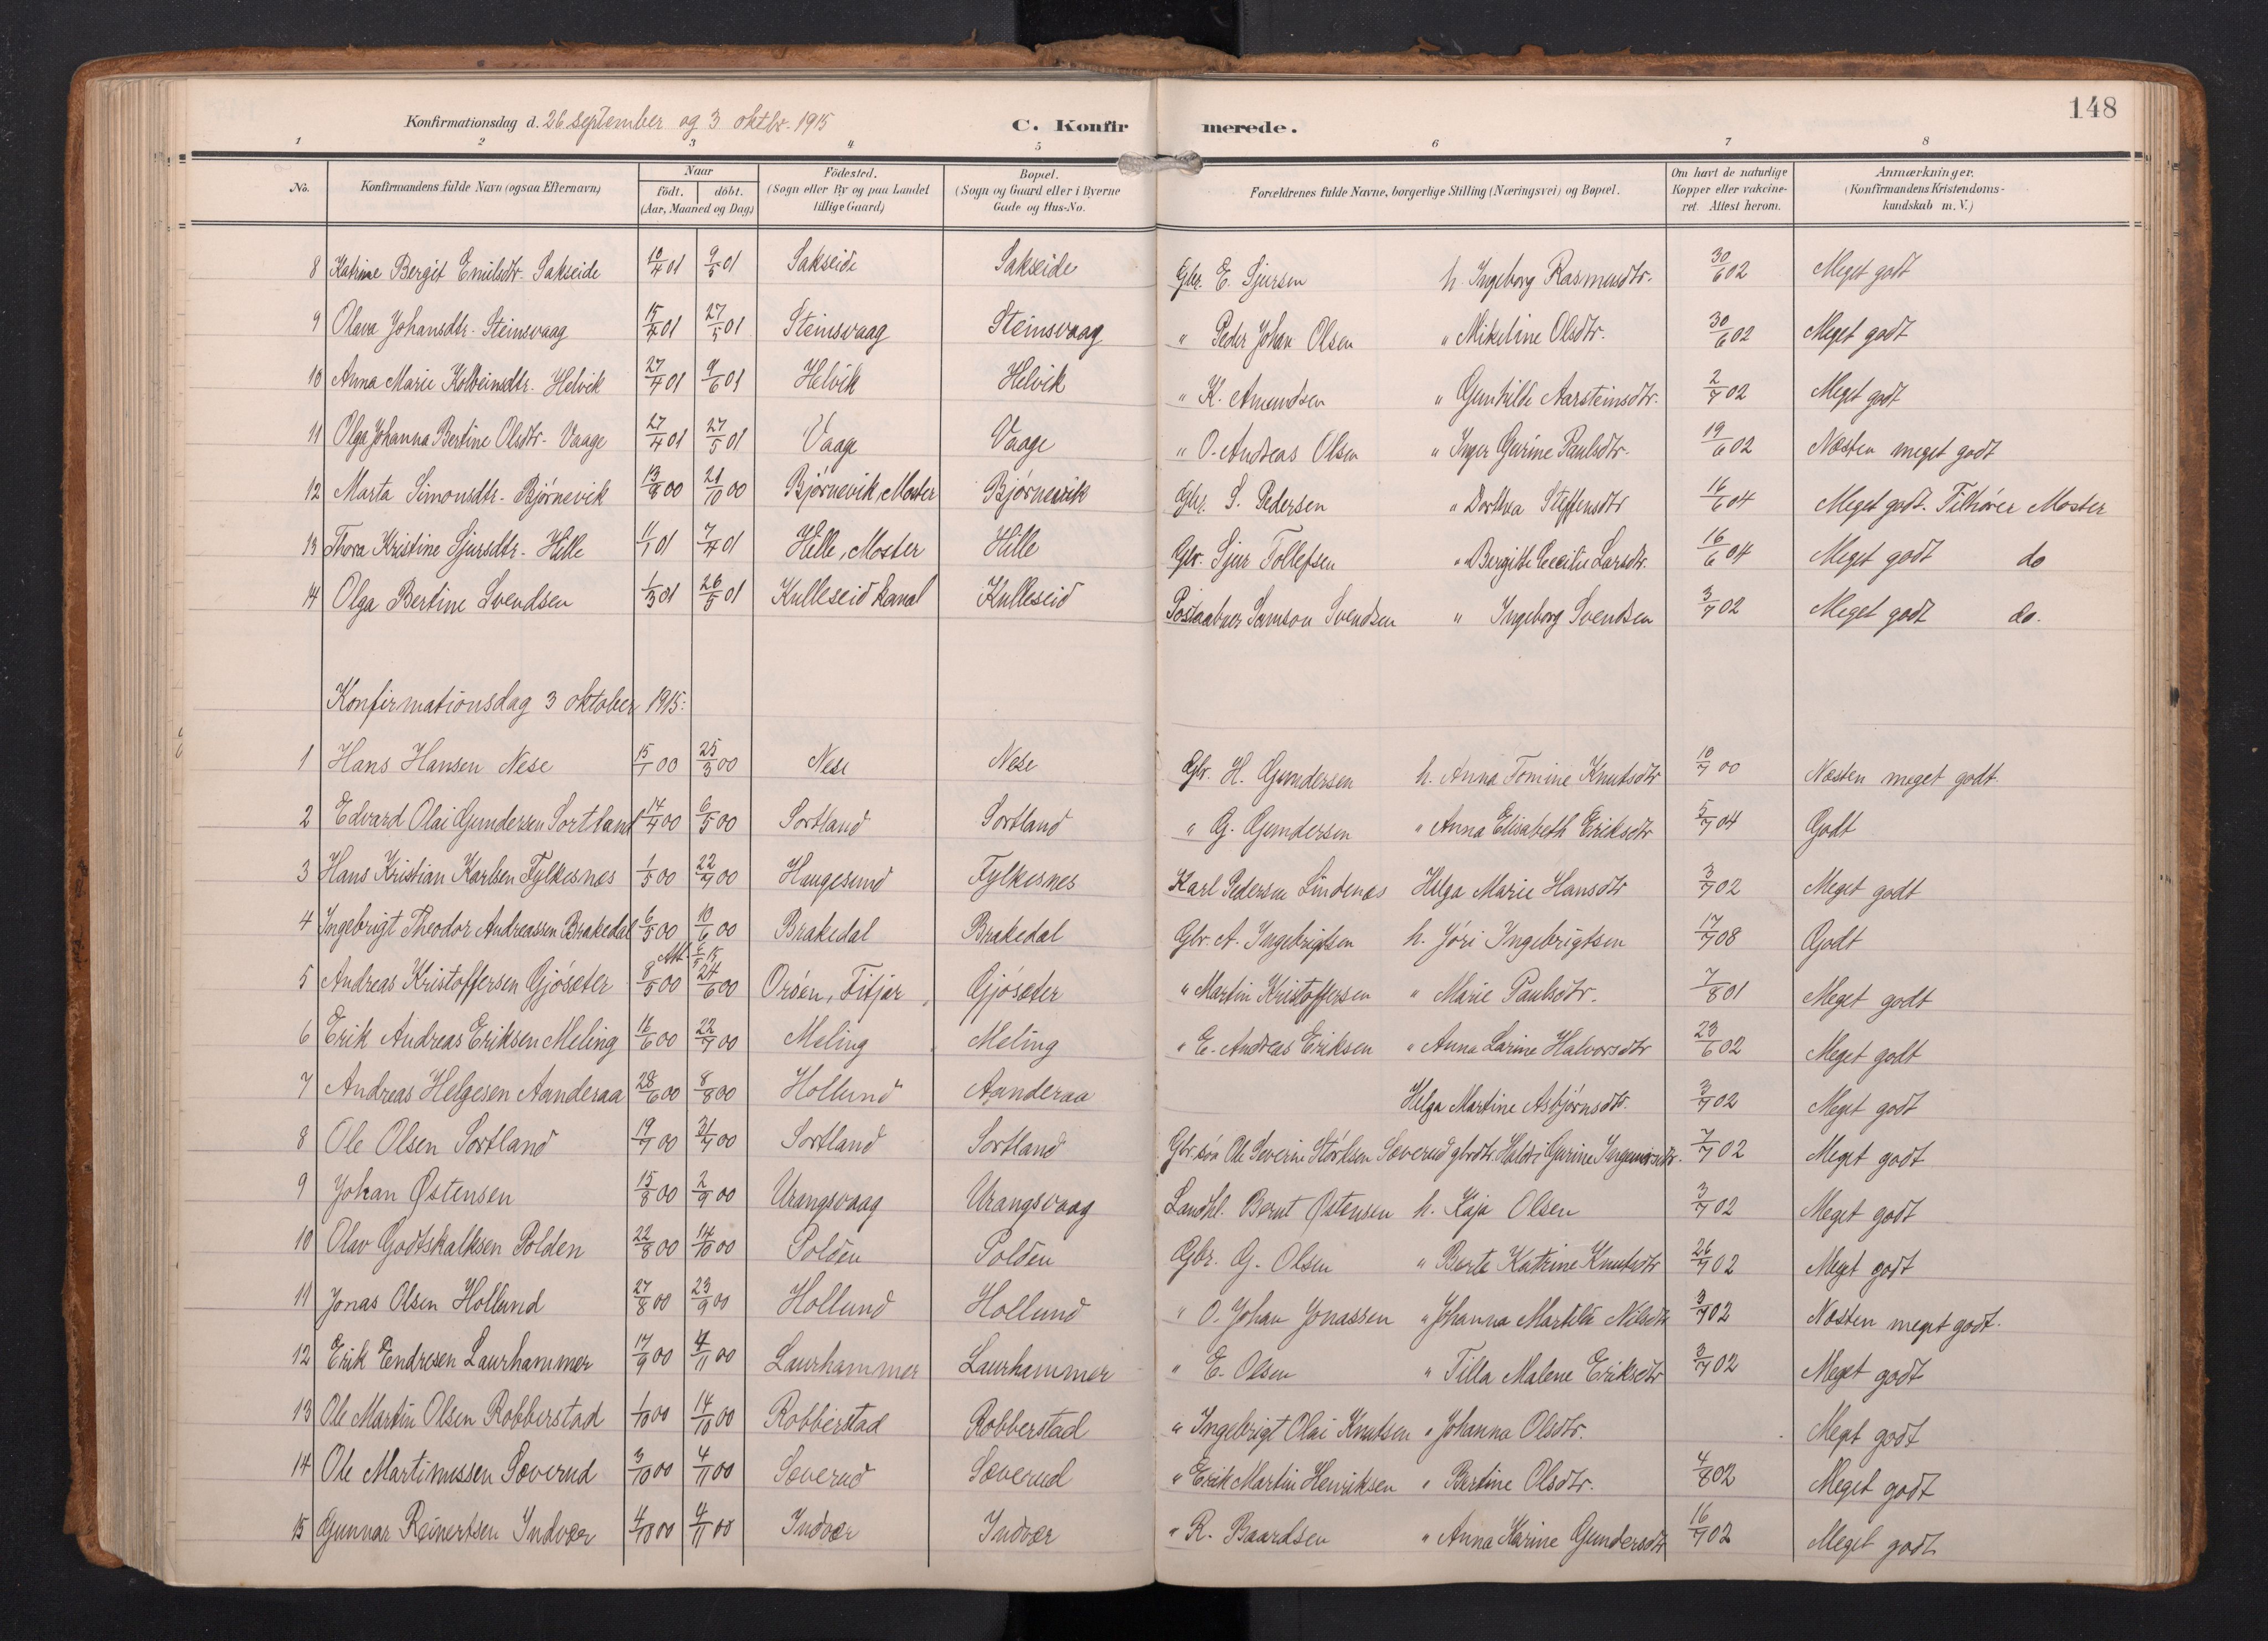 148
Konfirmationsdag d. 26 september og 3 oktbr. 1915
C. Konfirmerede.
1 2 3 4 5 6 7 8
No. Konfirmandens fulde Navn (ogsaa Efternavn) Naar født. døbt. (Aar, Maaned og Dag) Fødested. (Sogn eller By og paa Landet tillige Gaard) Bopæl. (Sogn og Gaard eller i Byerne Gade og Hus-No. Forældrenes fulde Navne, borgerlige Stilling (Næringsvei) og Bopæl. Om havt de naturlige Kopper eller vakcineret. Attest herom. Anmærkninger. (Konfirmandens Kristendomskundskab m. V.)
8 Katrine Bergit Emilsdtr. Sakseide 10/4 01 9/5 01 Sakseide Sakseide Gbr. E. Sjursen h. Ingeborg Rasmusdtr. 30/6 02 Meget godt
9 Olava Johansdtr. Steinsvaag 15/4 01 27/5 01 Steinsvaag Steinsvaag " Peder Johan Olsen " Mikeline Olsdtr. 30/6 02 Meget godt
10 Anna Marie Kolbeinsdtr. Helvik 27/4 01 9/6 01 Helvik Helvik " K. Amundsen " Gunhilde Aarsteinsdtr. 2/7 02 Meget godt
11 Olga Johanna Bertine Olsdtr. Vaage 27/4 01 27/5 01 Vaage Vaage " O. Andreas Olsen " Inger Gurine Paulsdtr. 19/6 02 Næsten meget godt
12 Marta Simonsdtr. Bjørnevik 13/8 00 21/10 00 Bjørnevik, Moster Bjørnevik Gbr. S. Pedersen " Dorthea Steffensdtr 16/6 04 Meget godt. Tilhører Moster
13 Thora Kristine Sjursdtr. Hille 11/1 01 7/4 01 Hille, Moster Hille Gbr. Sjur Tollefsen " Bergitte Cecilie Larsdtr. 16/6 04 Meget godt do
14 Olga Bertine Svendsen 1/3 01 26/5 01 Kulleseid kanal Kulleseid Postaabner Samson Svendsen " Ingeborg Svendsen 3/7 02 Meget godt do.
Konfirmationsdag 3 oktober 1915:
1 Hans Hansen Nese 15/1 00 25/3 00 Nese Nese Gbr. H. Gundersen h. Anna Tomine Knutsdtr 10/7 00 Næsten meget godt.
2 Edvard Olai Gundersen Sortland 14/4 00 6/5 00 Sortland Sortland " G. Gundersen " Anna Elisabeth Eriksdtr 5/7 04 Godt
3 Hans Kristian Karlsen Fylkesnes 1/5 00 22/7 00 Haugesund Fylkesnes Karl Pedersen Lindenæs Helga Marie Hansdtr 3/7 02 Meget godt
4 Ingebrigt Theodor Andreassen Brakedal 6/5 00 10/6 00 Brakedal Brakedal Gbr. A. Ingebrigtsen h. Jöri Ingebrigtsen 17/7 08 Godt
Att. 6/5 15
5 Andreas Kristoffersen Gjøsæter 8/5 00 24/6 00 Orøen, Fitjar Gjøsæter " Martin Kristoffersen " Marie Paulsdtr. 7/8 01 Meget godt
6 Erik Andreas Eriksen Meling 16/6 00 22/7 00 Meling Meling " E. Andreas Eriksen " Anna Larine Halvorsdtr 23/6 02 Meget godt
7 Andreas Helgesen Aanderaa 28/6 00 8/8 00 Hollund Aanderaa Helga Martine Asbjørnsdtr. 3/7 02 Meget godt
8 Ole Olsen Sortland 19/7 00 31/7 00 Sortland Sortland Gbr.søn Ole Severin Størksen Sæverud gbrdtr. Haldi Gurine Ingemorsdtr. 7/7 02 Meget godt
9 Johan Østensen 15/8 00 2/9 00 Urangsvaag Urangsvaag Landhl. Bernt Østensen h. Kaja Olsen 3/7 02 Meget godt
10 Olav Godtskalksen Polden 22/8 00 14/10 00 Polden Polden Gbr. G. Olsen " Berte Katrine Knutsdtr 26/7 02 Meget godt
11 Jonas Olsen Hollund 27/8 00 23/9 00 Hollund Hollund " O. Johan Jonassen " Johanna Martile Nilsdtr 3/7 02 Næsten meget godt.
12 Erik Endresen Laurhammer 17/9 00 4/11 00 Laurhammer Laurhammer " E. Olsen " Tilla Malene Eriksdtr 3/7 02 Meget godt
13 Ole Martin Olsen Robberstad 1/10 00 14/10 00 Robberstad Robberstad " Ingebrigt Olai Knutsen " Johanna Olsdtr. Meget godt
14 Ole Martinussen Sæverud 3/10 00 4/11 00 Sæverud Sæverud " Erik Martin Henriksen " Bertine Olsdtr. 4/8 02 Meget godt
15 Gunnar Reinertsen Indvær 4/10 00 4/11 00 Indvær Indvær " R. Baardsen " Anna Karine Gundersdtr 16/7 02 Meget godt